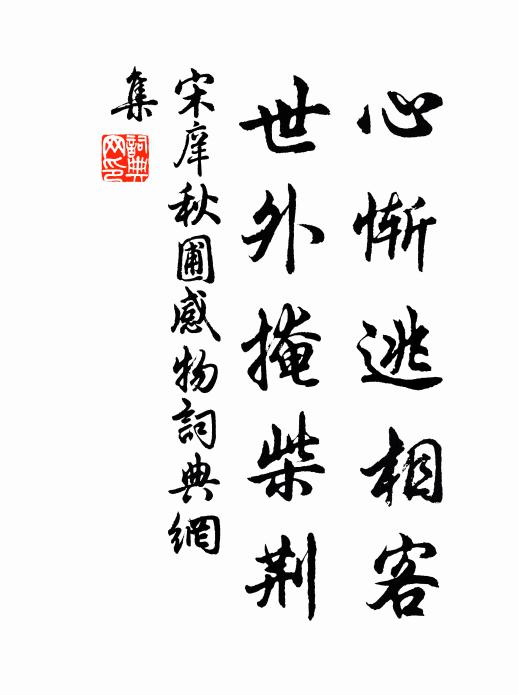 心慚逃相客
世外掩柴荆
宋庠秋圃感物詞典網
集
詞典
网印